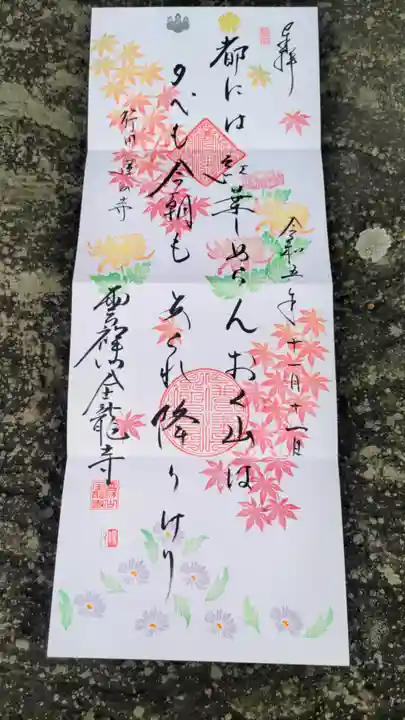 奉拝
令和五年十一月十一日
都には紅葉しぬらんおく山は
夕べも今朝もあられ降りけり
金龍寺